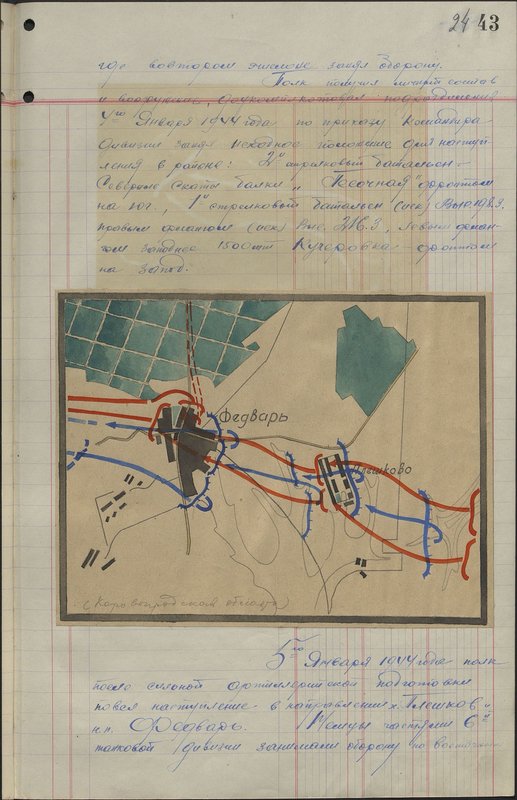 24 43
где во втором эшелоне занял оборону.
Полк получил личный состав
и вооружение, доукомплектовал подразделения
Января 1944 года по приказу Командира
дивизии занял исходное положение для наступ-
ления в районе: 2й стрелковый батальон -
Северные скаты балки „Песочная" фронтом
на юг., 1й стрелковый батальон (иск) Выс 198,3,
правым флангом (иск) Выс. , левым флан-
гом западнее 1500 мт Кучеровка фронтом
на запад.
Федварь
Плешково
(Кировоградской области)
5го Января 1944 года полк
после сильной артиллерийской подготовки
повел наступление в направлении х. Плешков,
н.п. Федварь. Немцы частями 6й
танковой дивизии занимали оборону по восточной